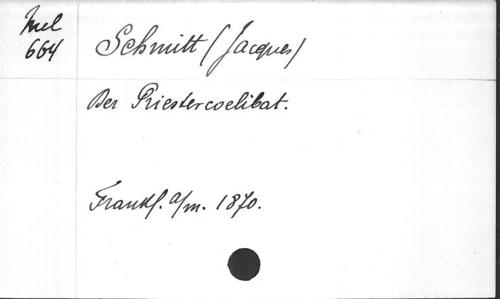 Mel
664
Schmitt (Jacques)
Der Priestercoelibat.
Frankf. a/m. 1870.